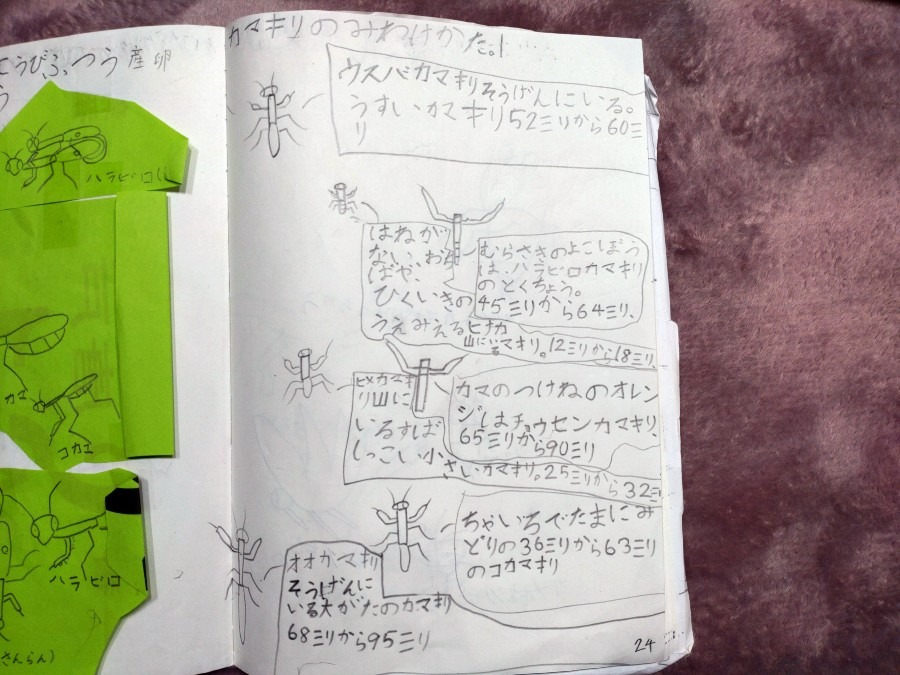 こうびふつう産卵
う
ハラビロ
カエ
コカエ
ハラビロ
さんらん)
カマキリのみわけかた。
ウスバカマキリそうげんにいる。
うすいカマキリ52ミリから60ミ
リ
はねが
ない、お
ばや、
ひくいきの
うえみえるヒナカ
山にいる
マキリ。12ミリから18ミリ
むらさきのよこぼう
は、ハラビロカマキリ
のとくちょう。
45ミリから64ミリ、
ヒメカマキ
リ山に
いるすば
しっこい小
さいカマキリ。25ミリから32ミ
カマのつけねのオレン
ジはチョウセンカマキリ、
65ミリから90ミリ
オオカマキリ
そうげんに
いる大がたのカマキリ
68ミリから95ミリ
ちゃいろでたまにみ
どりの36ミリから63ミリ
のコカマキリ
24